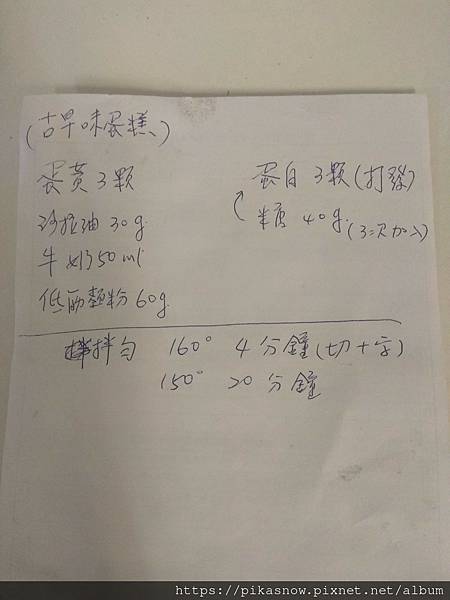 (古早味蛋糕)
蛋黃 3顆
沙拉油 30g
牛奶50ml
低筋麵粉 60g
蛋白 3顆(打發)
糖 40g(3次加入)
拌勻 160° 4分鐘(切十字)
150° 20分鐘
https://pikasnow.pixnet.net/album